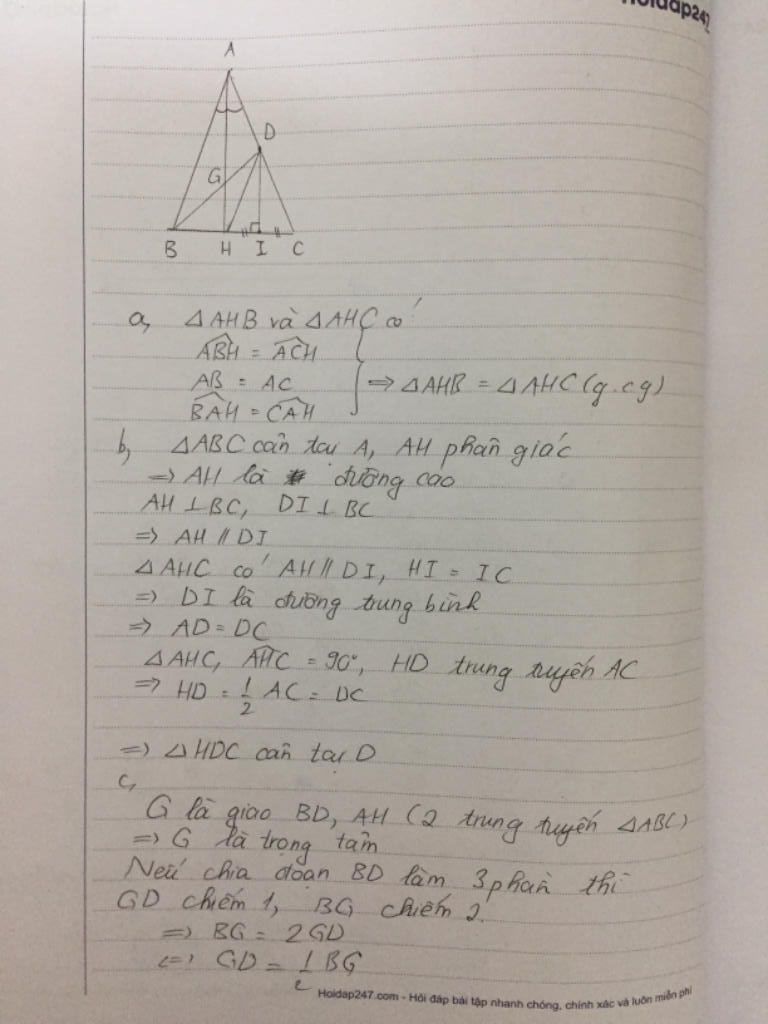 Hoidap247
A
D
G
B H I C
a, △AHB và △AHC có
\widehat{ABH} = \widehat{ACH}
AB = AC
\widehat{BAH} = \widehat{CAH}
=> △AHB = △AHC (g.c.g)
b, △ABC cân tại A, AH phân giác
=> AH là đường cao
AH ⊥ BC, DI ⊥ BC
=> AH // DI
△AHC có AH // DI, HI = IC
=> DI là đường trung bình
=> AD = DC
△AHC, \widehat{AHC} = 90°, HD trung tuyến AC
=> HD = 1/2 AC = DC
=> △HDC cân tại D
c,
G là giao BD, AH (2 trung tuyến △ABC)
=> G là trọng tâm
Nếu chia đoạn BD làm 3 phần thì
GD chiếm 1, BG chiếm 2.
=> BG = 2GD
<=> GD = 1/2 BG
Hoidap247.com - Hỏi đáp bài tập nhanh chóng, chính xác và luôn miễn phí